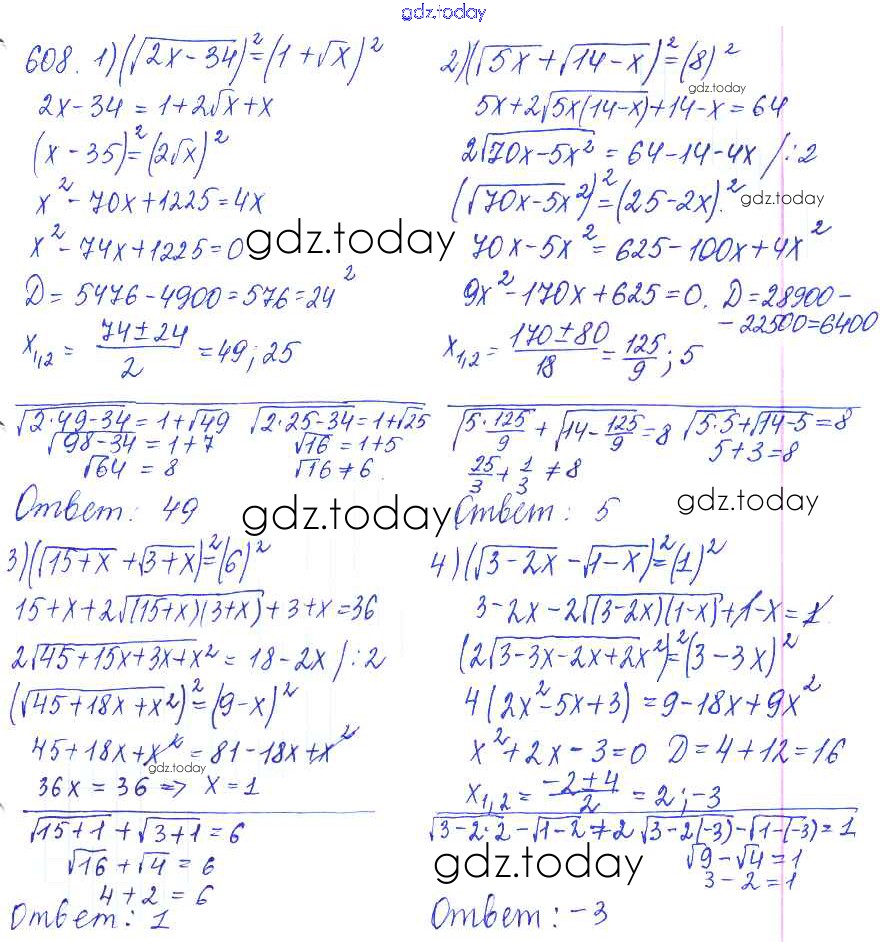 gdz.today
608. 1) (√(2x-34))² = (1+√x)²
2x-34 = 1+2√x+x
(x-35)² = (2√x)²
x²-70x+1225=4x
x²-74x+1225=0
D = 5476-4900=576=24²
x₁,₂ = (74±24)/2 = 49; 25
√(2·49-34) = 1+√49 √(2·25-34) = 1+√25
√(98-34) = 1+7 √16 = 1+5
√64 = 8 √16 ≠ 6.
Ответ: 49
2) (√(5x)+√(14-x))² = (8)²
gdz.today
5x+2√(5x(14-x))+14-x=64
2√(70x-5x²) = 64-14-4x /:2
(√(70x-5x²))² = (25-2x)².
gdz.today
70x-5x² = 625-100x+4x²
gdz.today
9x²-170x+625=0. D=28900-
-22500=6400
x₁,₂ = (170±80)/18 = 125/9; 5
√(5·125/9) + √(14-125/9) = 8 √(5·5)+√(14-5)=8
25/3 + 1/3 ≠ 8 5+3=8
Ответ: 5
gdz.today
gdz.today
3) (√(15+x)+√(3+x))² = (6)²
15+x+2√((15+x)(3+x))+3+x=36
2√(45+15x+3x+x²) = 18-2x /:2
(√(45+18x+x²))² = (9-x)²
45+18x+x² = 81-18x+x²
gdz.today
36x = 36 => x=1
√(15+1) + √(3+1) = 6
√16 + √4 = 6
4+2 = 6
Ответ: 1
4) (√(3-2x) - √(1-x))² = (1)²
3-2x-2√((3-2x)(1-x))+1-x=1
(2√(3-3x-2x+2x²))² = (3-3x)²
4(2x²-5x+3) = 9-18x+9x²
x²+2x-3=0 D=4+12=16
x₁,₂ = (-2±4)/2 = 2; -3
√(3-2·2) - √(1-2) ≠ 2 √(3-2(-3)) - √(1-(-3)) = 1
√9-√4=1
3-2=1
gdz.today
Ответ: -3